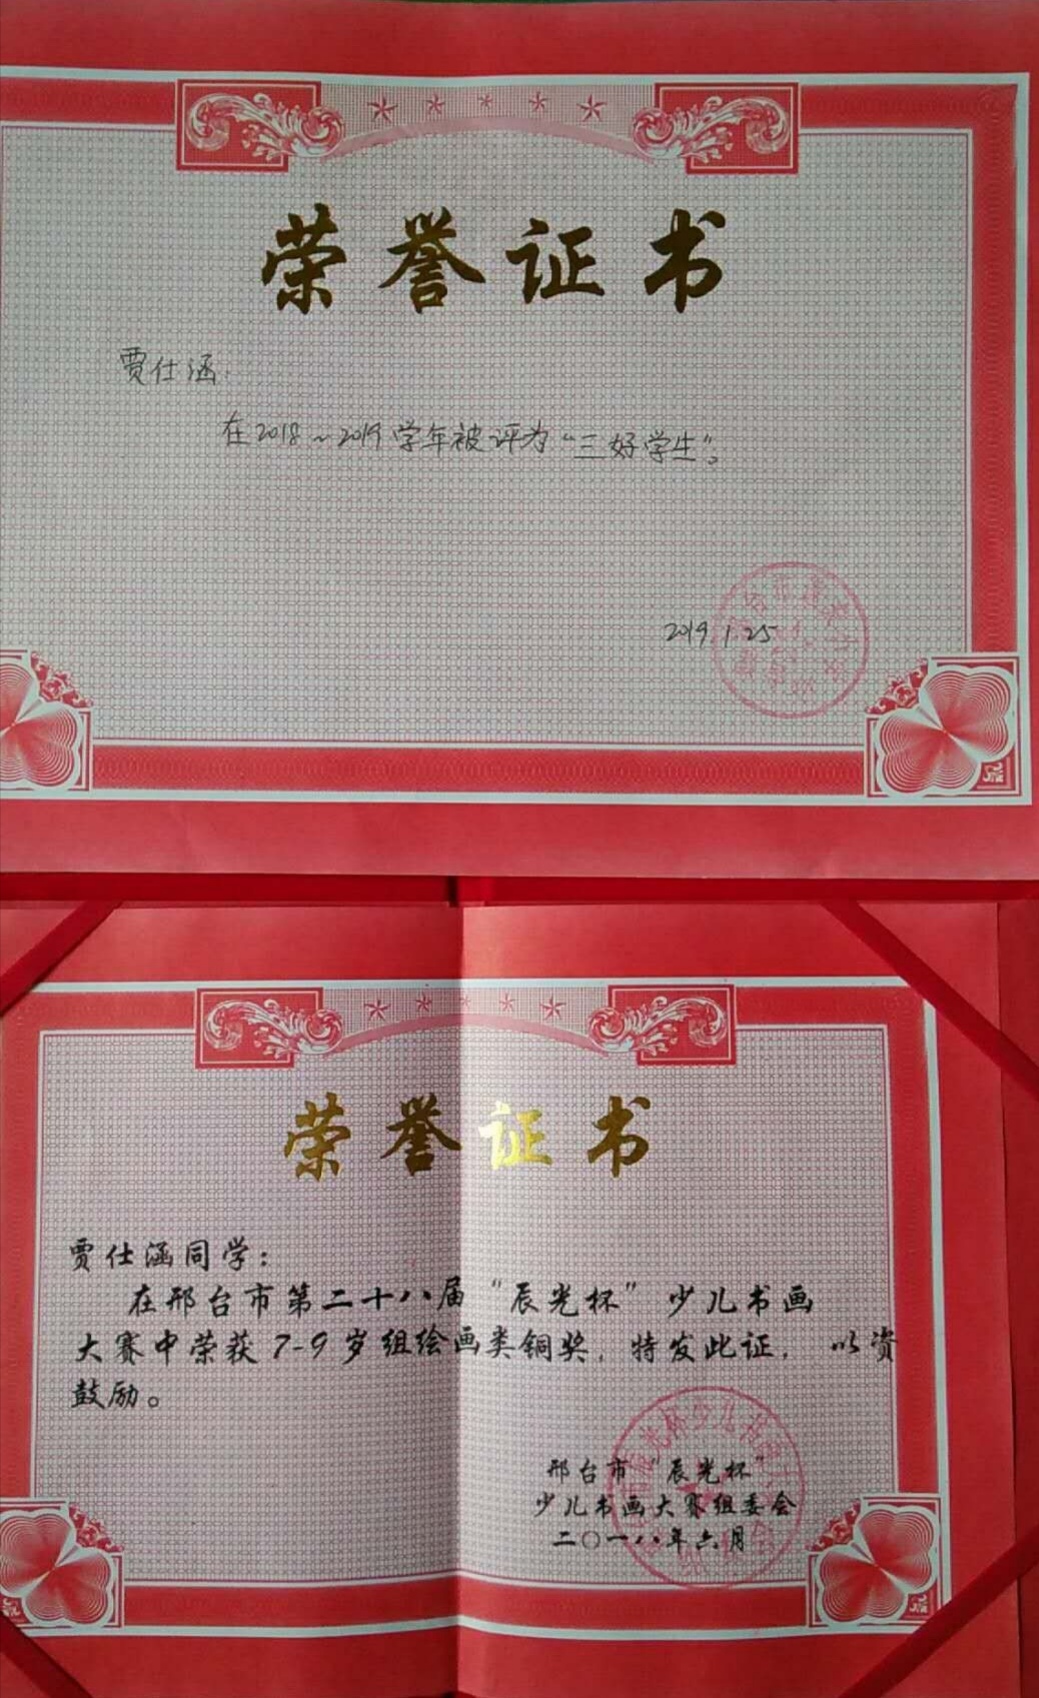 荣誉证书
贾仕涵:
在2018~2019学年被评为“三好学生”。
2019.1.25
荣誉证书
贾仕涵同学:
在邢台市第二十八届“辰光杯”少儿书画
大赛中荣获7-9岁组绘画类铜奖,特发此证,以资
鼓励。
邢台市“辰光杯”
少儿书画大赛组委会
二〇一八年六月